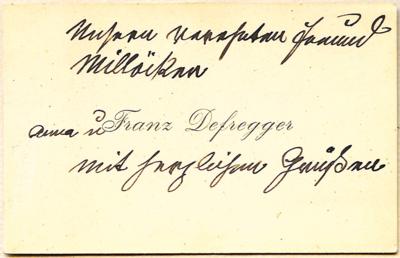 Unsern verehrten Freund
Millöcker
Anna u Franz Defregger
mit herzlichen Grüßen